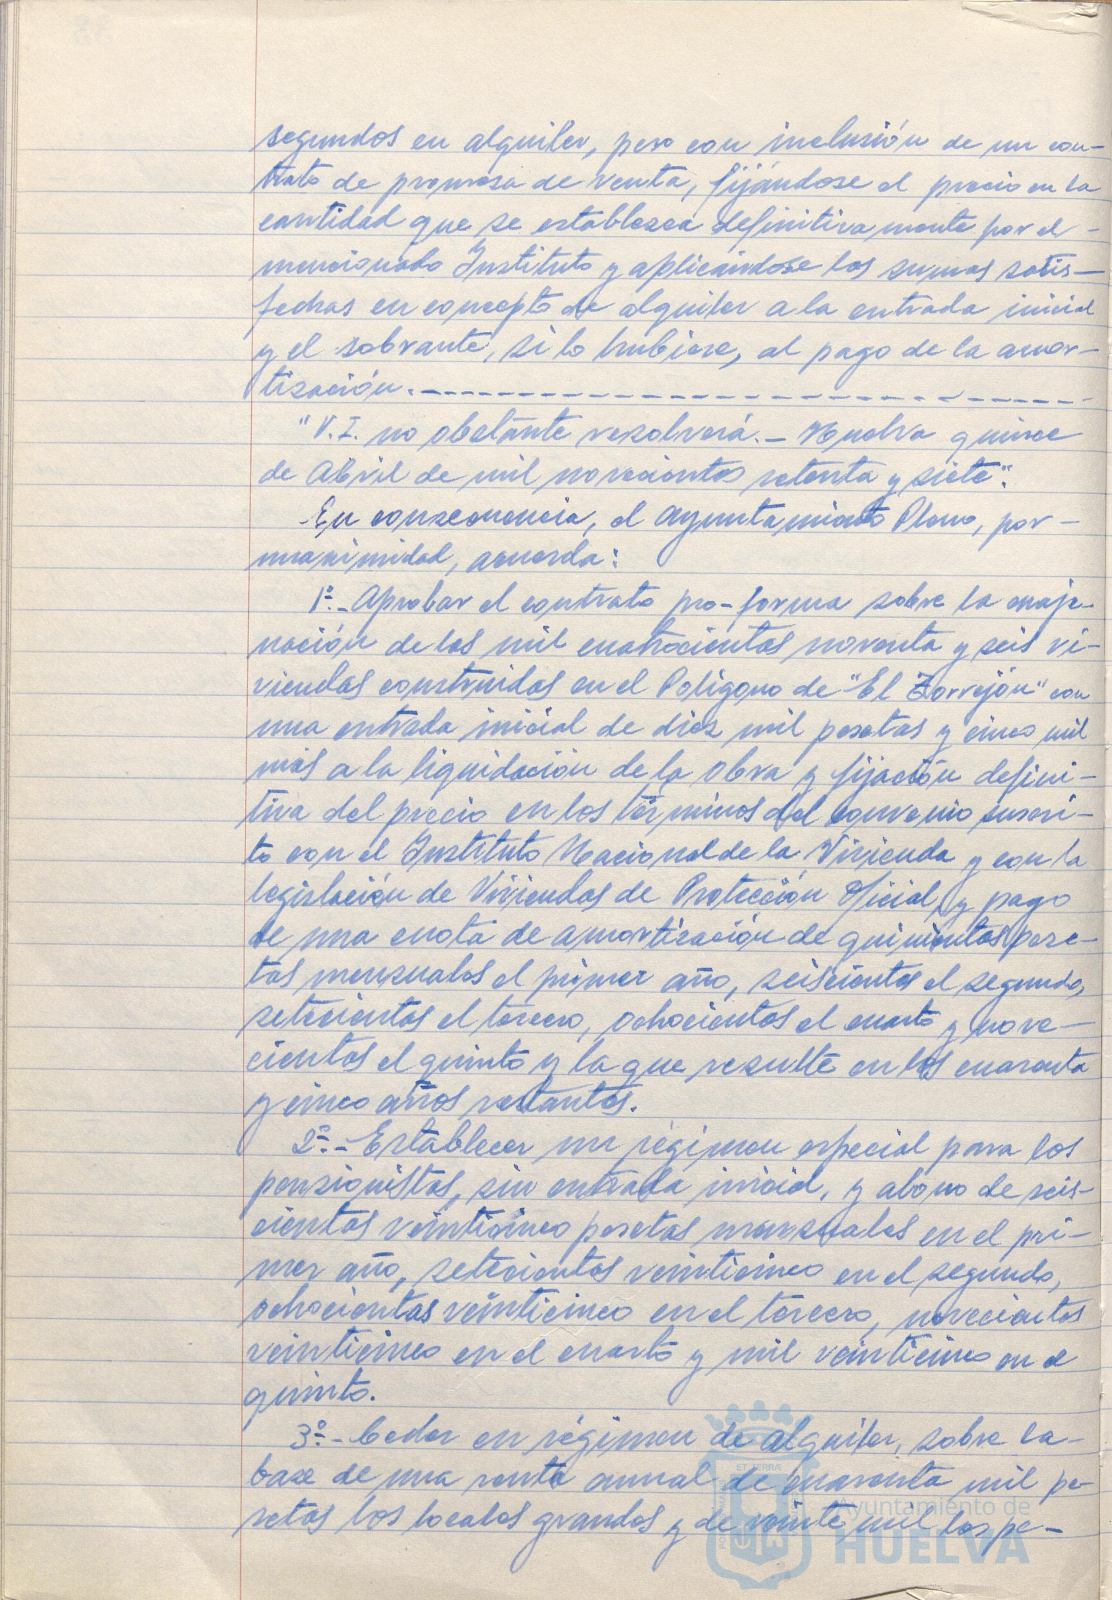 segundos en alquiler, pero con inclusión de un con-
trato de promesa de venta, fijándose el precio en la
cantidad que se establezca definitivamente por el -
mencionado Instituto y aplicándose las sumas satis-
fechas en concepto de alquiler a la entrada inicial
y el sobrante, si lo hubiese, al pago de la amor-
tización.
"V.I. no obstante resolverá.- Huelva quince
de Abril de mil novecientos setenta y siete".
En consecuencia, el Ayuntamiento Pleno, por -
unanimidad, acuerda:
1º.- Aprobar el contrato pro-forma sobre la enaje-
nación de las mil cuatrocientas noventa y seis vi-
viendas construidas en el Polígono de "El Torrejón" con
una entrada inicial de diez mil pesetas y cinco mil
más a la liquidación de la obra y fijación defini-
tiva del precio en los términos del convenio suscri-
to con el Instituto Nacional de la Vivienda y con la
legislación de Viviendas de Protección Oficial, y pago
de una cuota de amortización de quinientas pese-
tas mensuales el primer año, seiscientas el segundo,
setecientas el tercero, ochocientas el cuarto y nove-
cientas el quinto y la que resulte en los cuarenta
y cinco años restantes.
2º.- Establecer un régimen especial para los
pensionistas, sin entrada inicial, y abono de seis-
cientas veinticinco pesetas mensuales en el pri-
mer año, setecientas veinticinco en el segundo,
ochocientas veinticinco en el tercero, novecientas
veinticinco en el cuarto y mil veinticinco en el
quinto.
3º.- Ceder en régimen de alquiler, sobre la -
base de una renta anual de cuarenta mil pe-
setas los locales grandes y de veinte mil los pe-
Ayuntamiento de
HUELVA